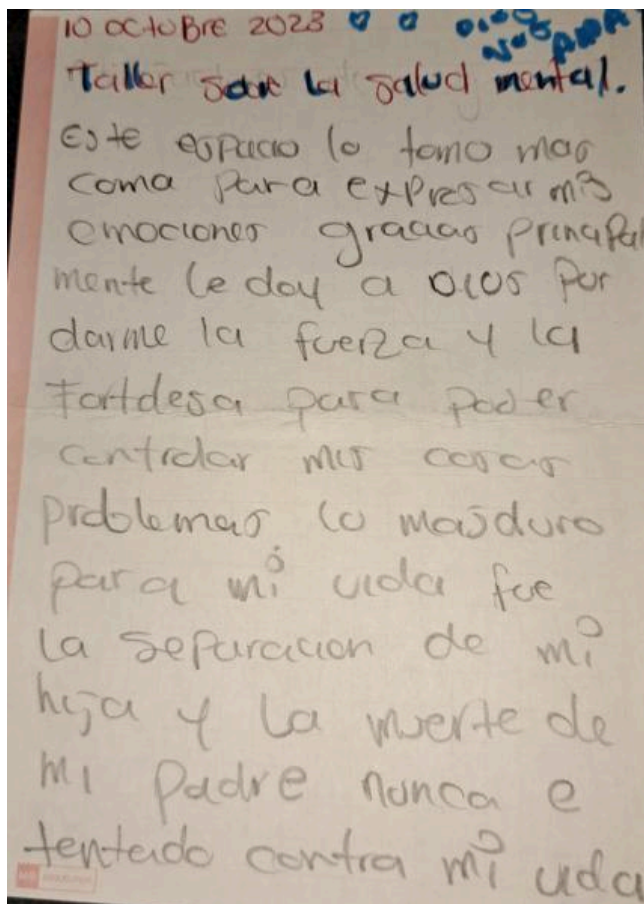 10 OCTUBRE 2023 DIOS NOS AMA
Taller sobre la salud mental.
Este espacio lo tomo mas
como para expresar mis
emociones gracias principal
mente le doy a DIOS por
darme la fuerza y la
fortdesa para poder
controlar mis cosas
problemas. lo mas duro
para mi vida fue
la separacion de mi
hija y la muerte de
mi padre nunca e
tentado contra mi vida